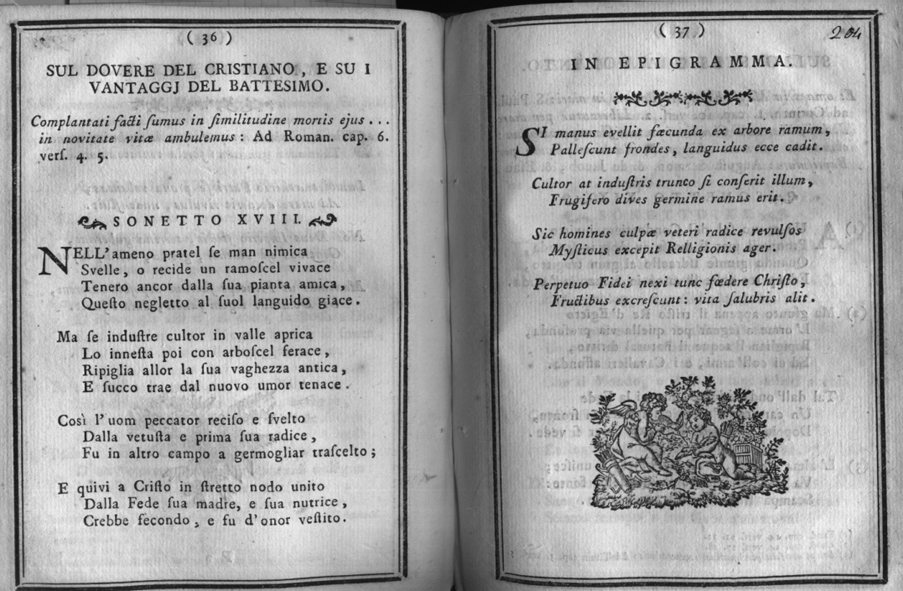 ( 36 )
SUL DOVERE DEL CRISTIANO, E SU I
VANTAGGJ DEL BATTESIMO.
Complantati facti ſumus in ſimilitudine mortis ejus ...
in novitate vitæ ambulemus: Ad Roman. cap. 6.
verſ. 4. 5.
SONETTO XVIII.
NELL'ameno pratel ſe man nimica
Svelle, o recide un ramoſcel vivace
Tenero ancor dalla ſua pianta amica,
Queſto negletto al ſuol languido giace.
Ma ſe induſtre cultor in valle aprica
Lo inneſta poi con arboſcel ferace,
Ripiglia allor la ſua vaghezza antica,
E ſucco trae dal nuovo umor tenace.
Così l'uom peccator reciſo e ſvelto
Dalla vetuſta e prima ſua radice,
Fu in altro campo a germogliar traſcelto;
E quivi a Criſto in ſtretto nodo unito
Dalla Fede ſua madre, e ſua nutrice,
Crebbe fecondo, e fu d'onor veſtito.
( 37 )
204
IN EPIGRAMMA.
SI manus evellit fœcunda ex arbore ramum,
Palleſcunt frondes, languidus ecce cadit.
Cultor at induſtris trunco ſi conſerit illum,
Frugifero dives germine ramus erit.
Sic homines culpæ veteri radice revulſos
Myſticus excepit Relligionis ager.
Perpetuo Fidei nexi tunc fœdere Chriſto,
Fructibus excreſcunt: vita ſalubris alit.